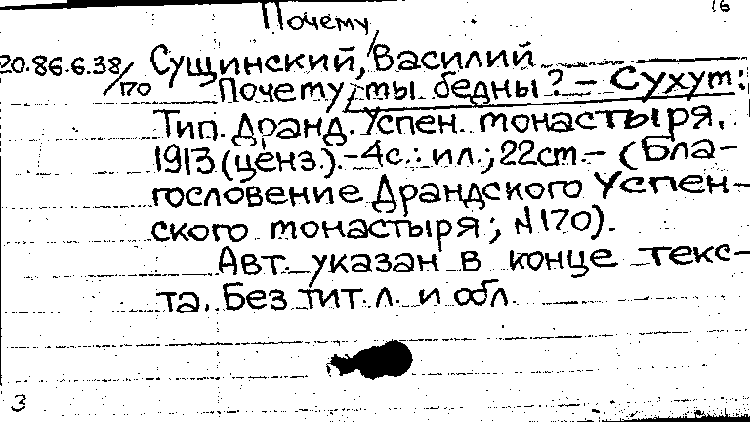 16
Почему
20.86.6.38/170
Сущинский, Василий
Почему мы бедны? - Сухум:
Тип. Дранд. Успен. монастыря,
1913 (ценз.). - 4с.: ил.; 22cm. - (Бла-
гословение Драндского Успен-
ского монастыря; N 170).
Авт. указан в конце текс-
та. Без тит.л. и обл.
3